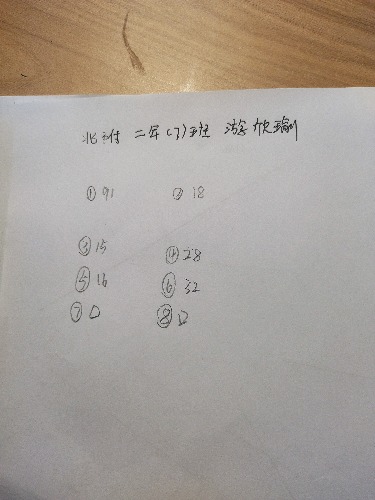 北附 二年(7)班 游欣瑜
① 91 ② 18
③ 15 ④ 28
⑤ 16 ⑥ 32
⑦ D ⑧ D